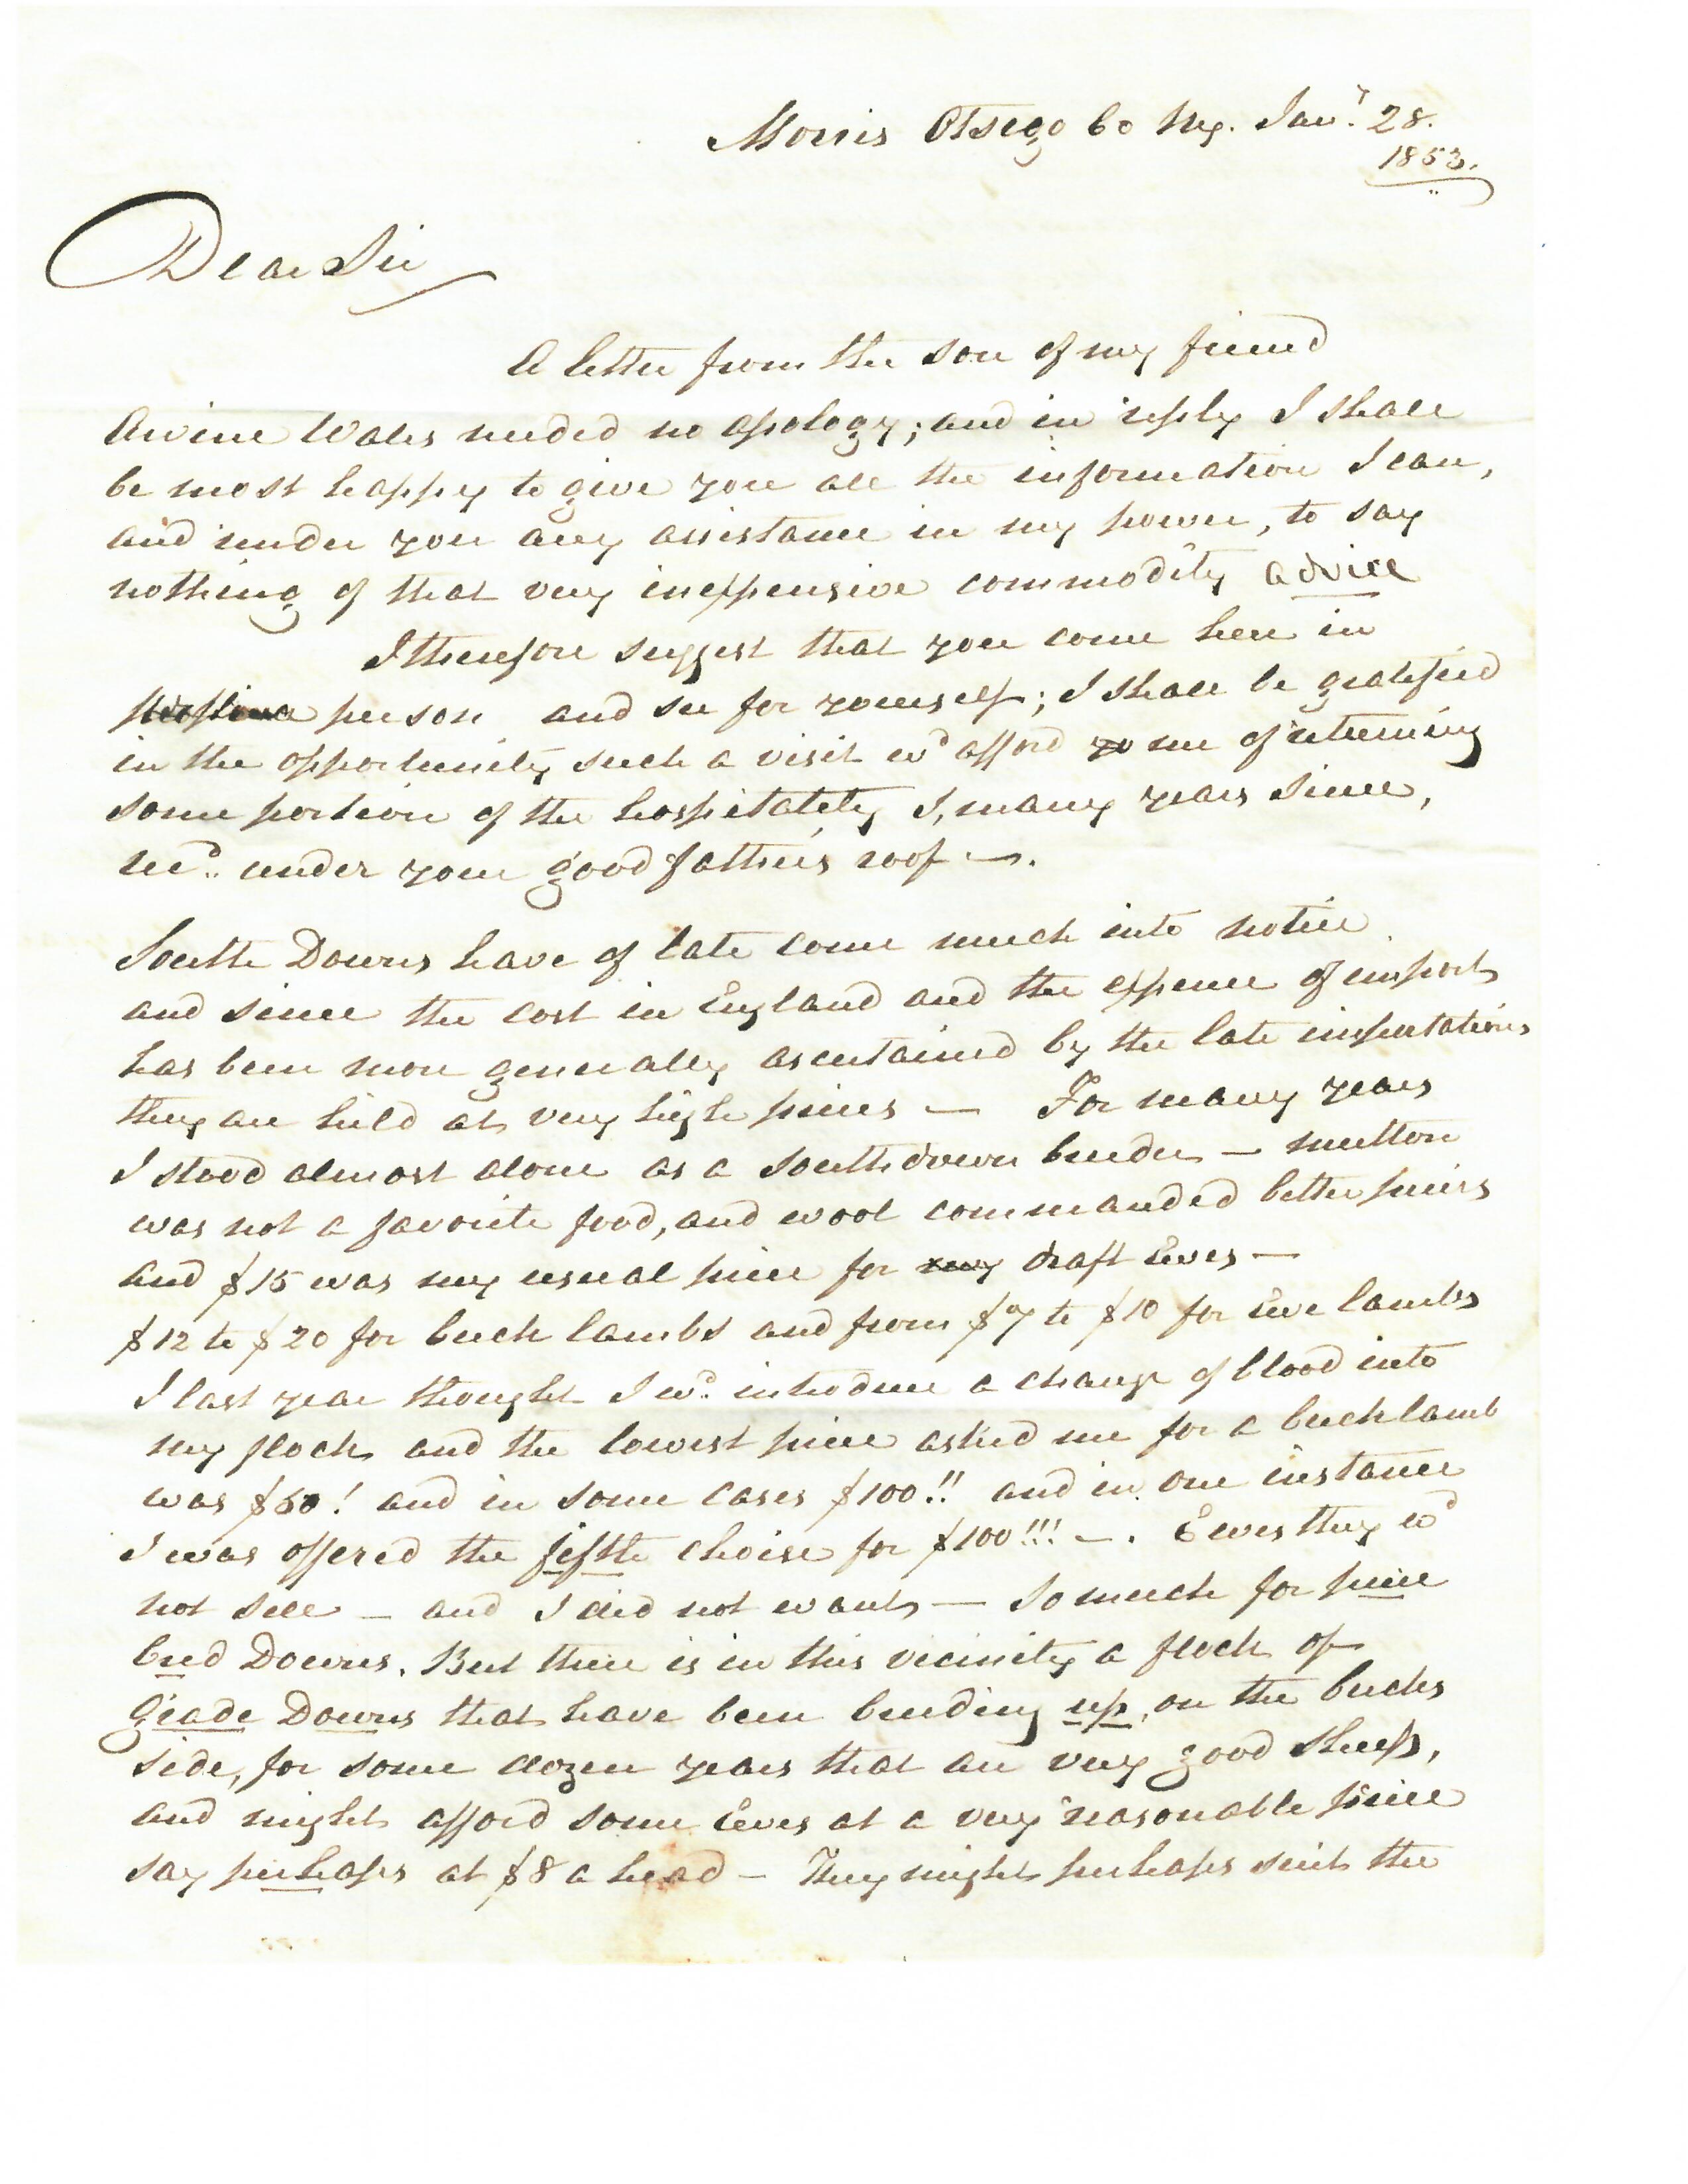 Morris Otsego Co Ny. Jany. 28.
1853.
Dear Sir
A letter from the son of my friend
Arvine Wales needed no apology; and in reply I shall
be most happy to give you all the information I can,
and render you any assistance in my power, to say
nothing of that very inexpensive commodity advice
I therefore suggest that you come here in
person and see for yourself; I shall be gratified
in the opportunity such a visit wd afford me of returning
some portion of the hospitality I, many years since,
recd. under your good father's roof —.
South Downs have of late come much into notice
and since the cost in England and the expence of import
has been more generally ascertained by the late importations
they are held at very high prices — For many years
I stood almost alone as a Southdown breeder — mutton
was not a favorite food, and wool commanded better prices
and $15 was my usual price for my draft Ewes —
$12 to $20 for buck lambs and from $7 to $10 for Ewe lambs
I last year thought I wd. introduce a change of blood into
my flock and the lowest price asked me for a buck lamb
was $50! and in some cases $100!! and in one instance
I was offered the fifth choise for $100!!! —. Ewes they wd
not sell — and I did not want — So much for pure
bred Downs. But there is in this vicinity a flock of
Grade Downs that have been breeding up, on the bucks
side, for some dozen years that are very good sheep,
and might afford some Ewes at a very reasonable price
say perhaps at $8 a head — They might perhaps suit the